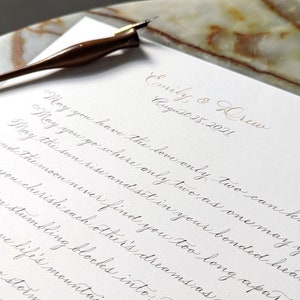 Emily & Drew
August 28, 2021
May you have the love only two can
May you go where only two as one may
May the sun rise and set in your bonded
and the moon never find you too long apart
you cherish each other's dreams as
stumbling blocks into
life's